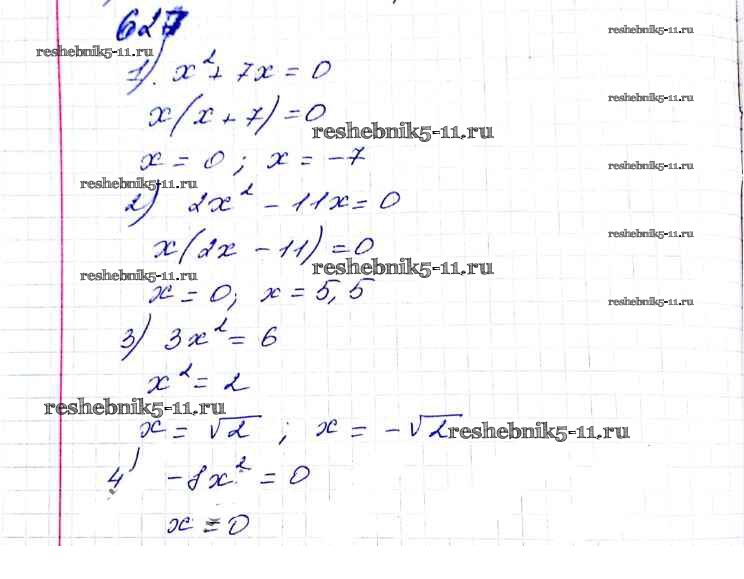 627
reshebnik5-11.ru
reshebnik5-11.ru
1) x² + 7x = 0
reshebnik5-11.ru
x(x + 7) = 0
reshebnik5-11.ru
x = 0; x = -7
reshebnik5-11.ru
reshebnik5-11.ru
2) 2x² - 11x = 0
reshebnik5-11.ru
x(2x - 11) = 0
reshebnik5-11.ru
reshebnik5-11.ru
x = 0; x = 5,5
reshebnik5-11.ru
3) 3x² = 6
x² = 2
reshebnik5-11.ru
x = √2 ; x = -√2
reshebnik5-11.ru
4) -8x² = 0
x = 0